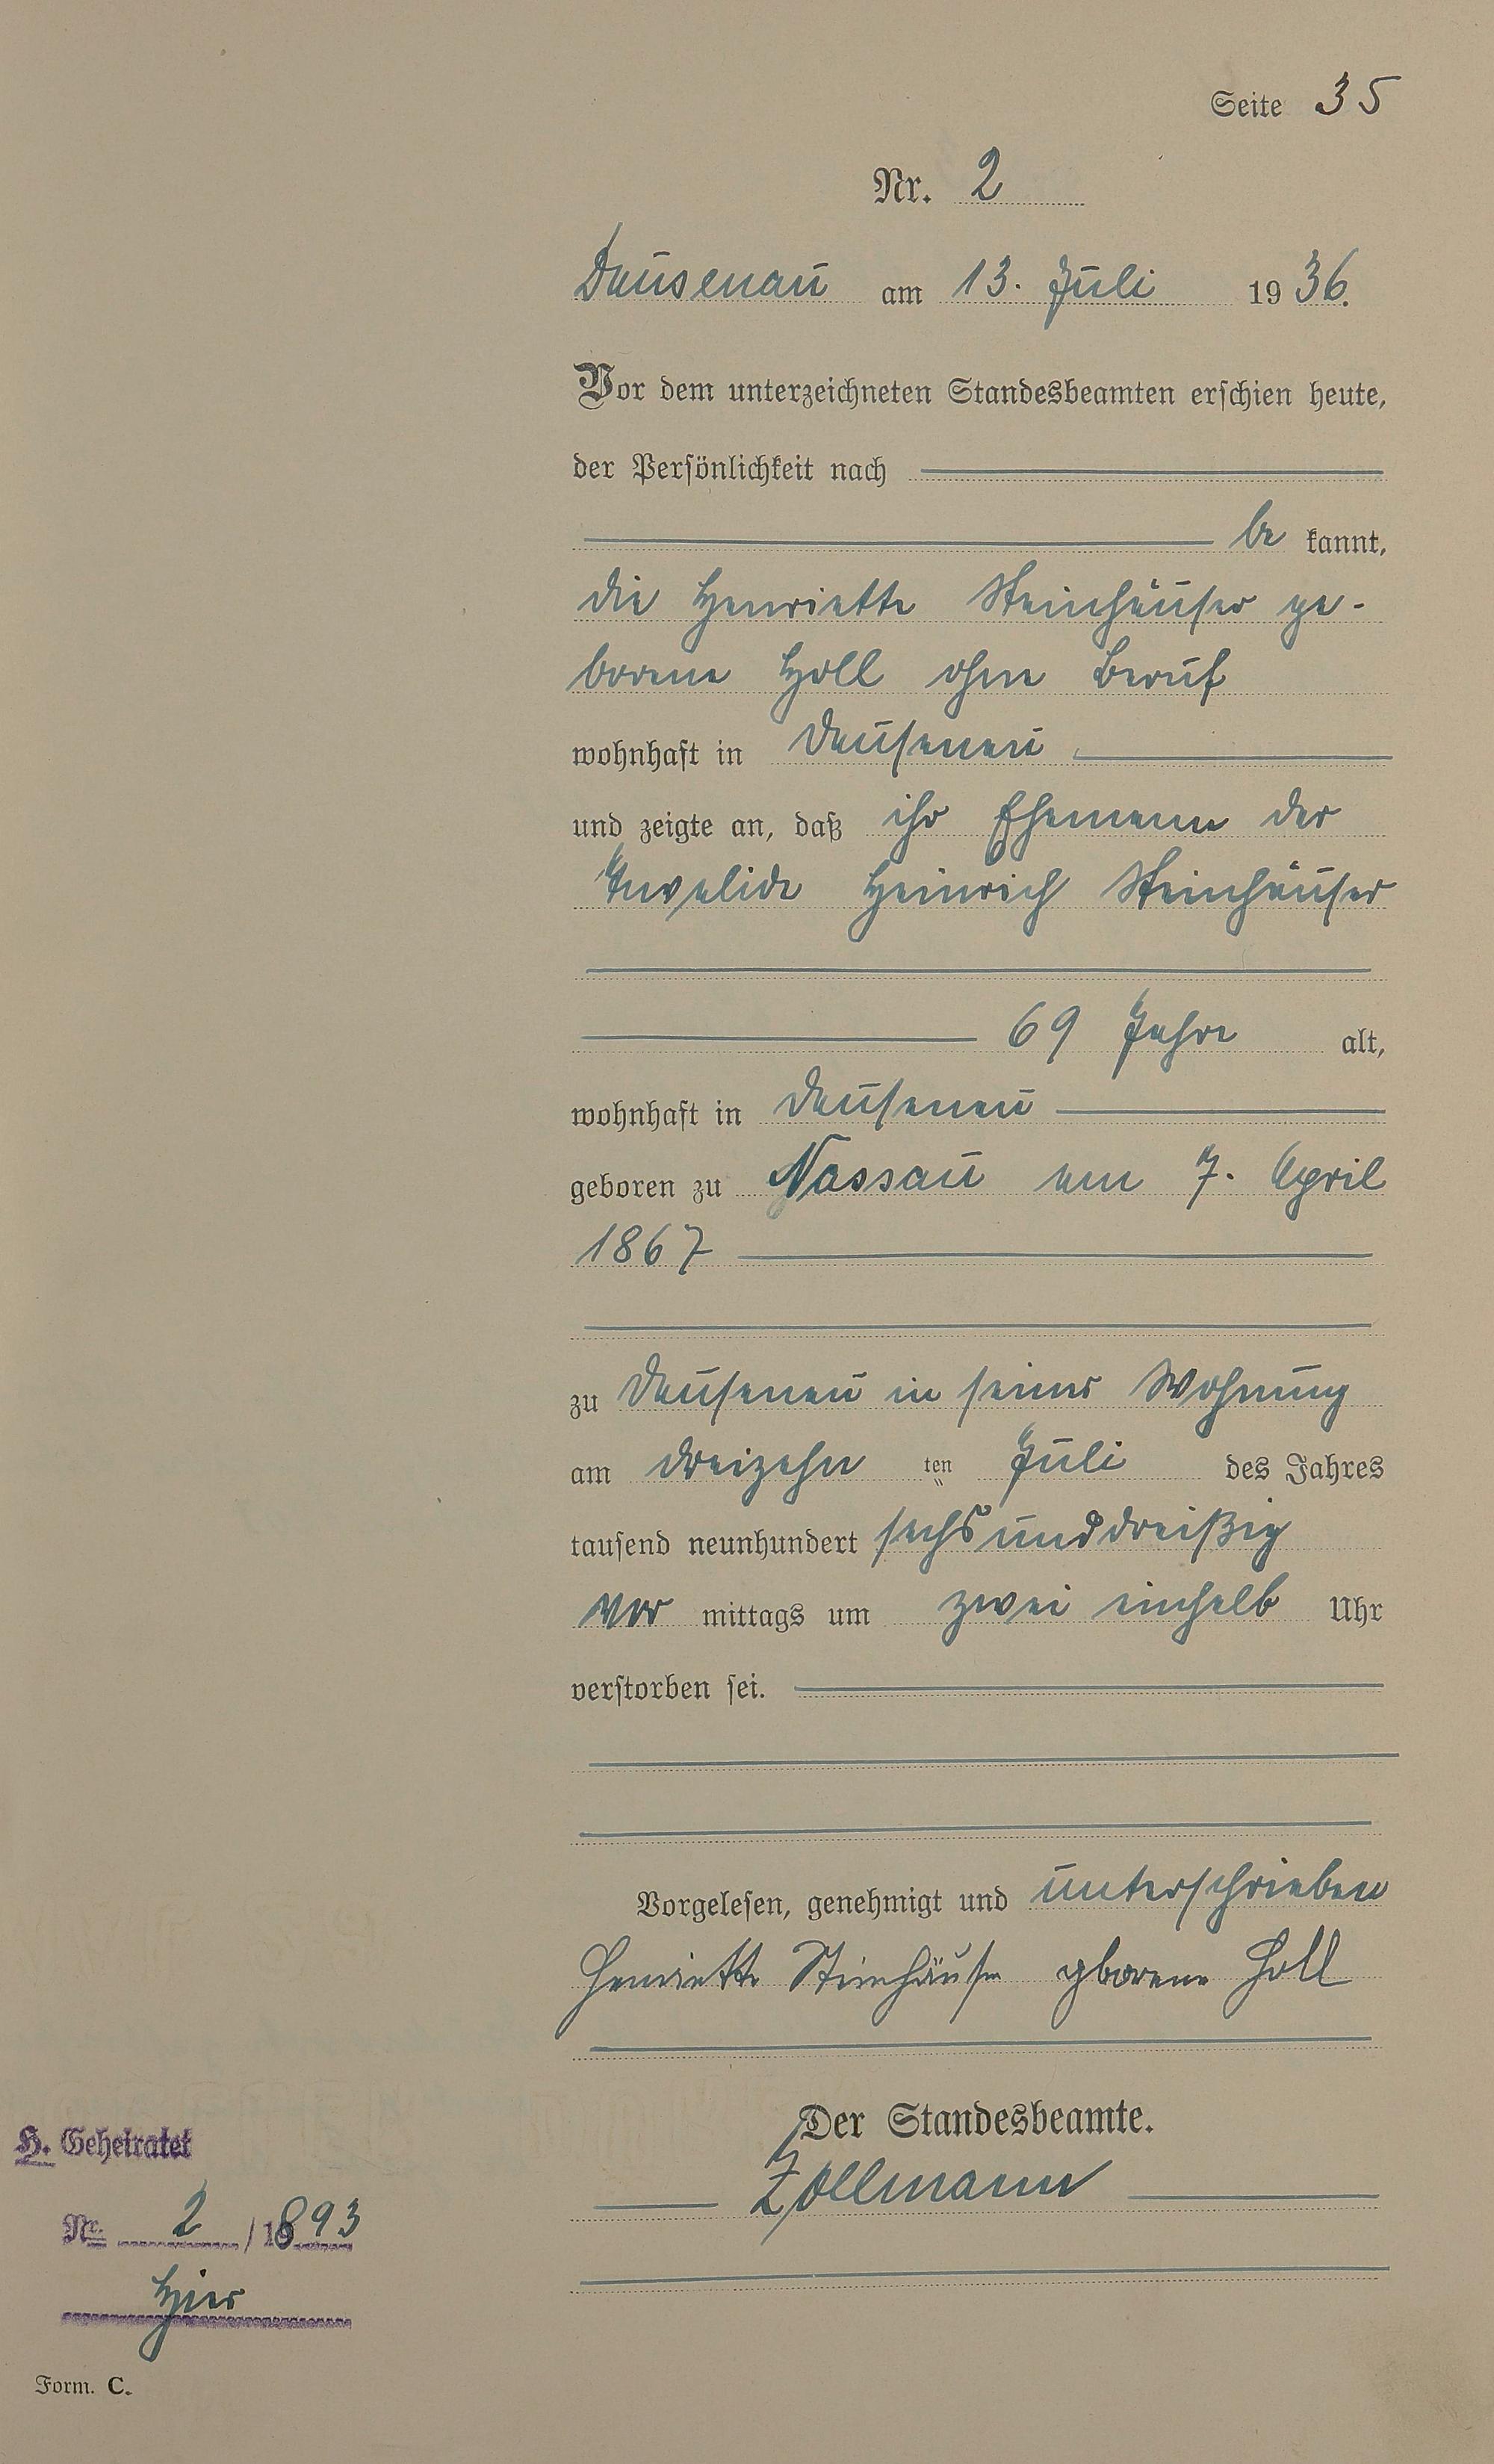 Seite 35
Nr. 2
Dausenau am 13. Juli 1936.
Vor dem unterzeichneten Standesbeamten erschien heute,
der Persönlichkeit nach
be kannt,
die Henriette Steinhäuser ge-
borene Holl ohne Beruf
wohnhaft in Dausenau
und zeigte an, daß ihr Ehemann der
Invalide Heinrich Steinhäuser
69 Jahre alt,
wohnhaft in Dausenau
geboren zu Nassau am 7. April
1867
zu Dausenau in seiner Wohnung
am dreizehn ten Juli des Jahres
tausend neunhundert sechsunddreißig
vor mittags um zwei einhalb Uhr
verstorben sei.
Vorgelesen, genehmigt und unterschrieben
Henriette Steinhäuser geborene Holl
Der Standesbeamte.
Zollmann
H. Geheiratet
Nr. 2 / 1893
Hier
Form. C.